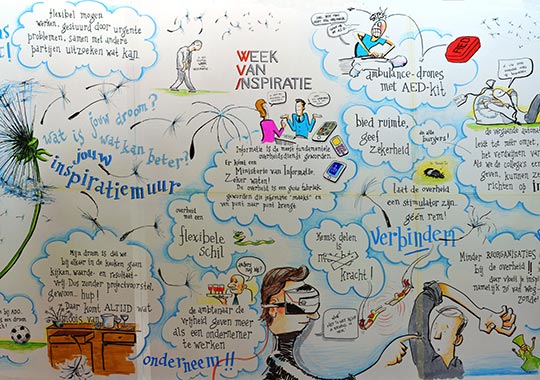 flexibel mogen
werken, gestuurd door urgente
problemen, samen met andere
partijen uitzoeken wat kan
WEEK
VAN
INSPIRATIE
ambulance-drones
met AED-kit
wat is jouw droom?
wat kan beter?
jouw
inspiratiemuur
Informatie is de meest fundamentele
overheidsdienst geworden.
Er komt een
Ministerie van Informatie.
Zeker weten!
De overheid is een grote fabriek
geworden die informatie "maakt" en
van punt naar punt brengt.
bied ruimte,
geef
zekerheid
en alle
burgers!
de vergaande automat
leidt tot meer
het verdwijnen van
Als we de collega's een
geven, kunnen ze
richten op
laat de overheid
een stimulator zijn,
géén rem!
verbinden
overheid
met een
flexibele
schil
Kennis delen
is
kracht!
Minder REORGANISATIES
bij de overheid!!
daar vloeit je inspi
namelijk
zonde!
Mijn droom is dat we
bij elkaar in de keuken gaan
kijken, waarde- en resultaat-
vrij. Dus zonder projectvoorstel,
gewoon.. hup!
Daar komt ALTIJD wat
anders nog
de ambtenaar de
vrijheid geven meer
als een ondernemer
te werken
onderneem!!